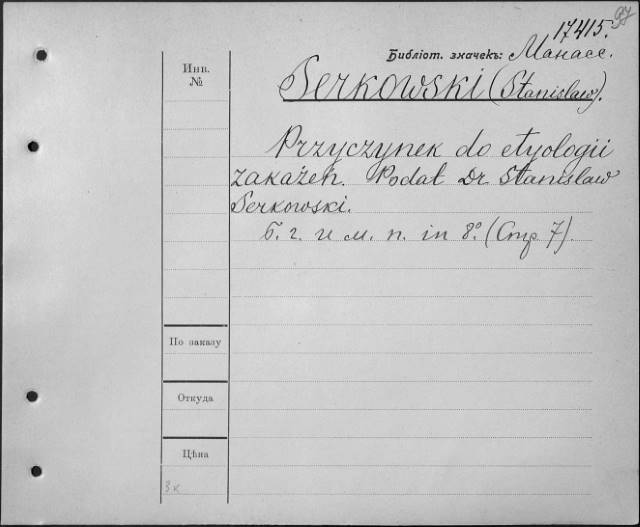 17415.
Библіот. значекъ: Манасе.
Инв.
№
Serkowski (Stanisław).
Przyczynek do etyologii
zakażeń. Podał Dr. Stanisław
Serkowski.
Б. г. и м. п. in 8.° (Стр 7).
По заказу
Откуда
Цѣна
3 к